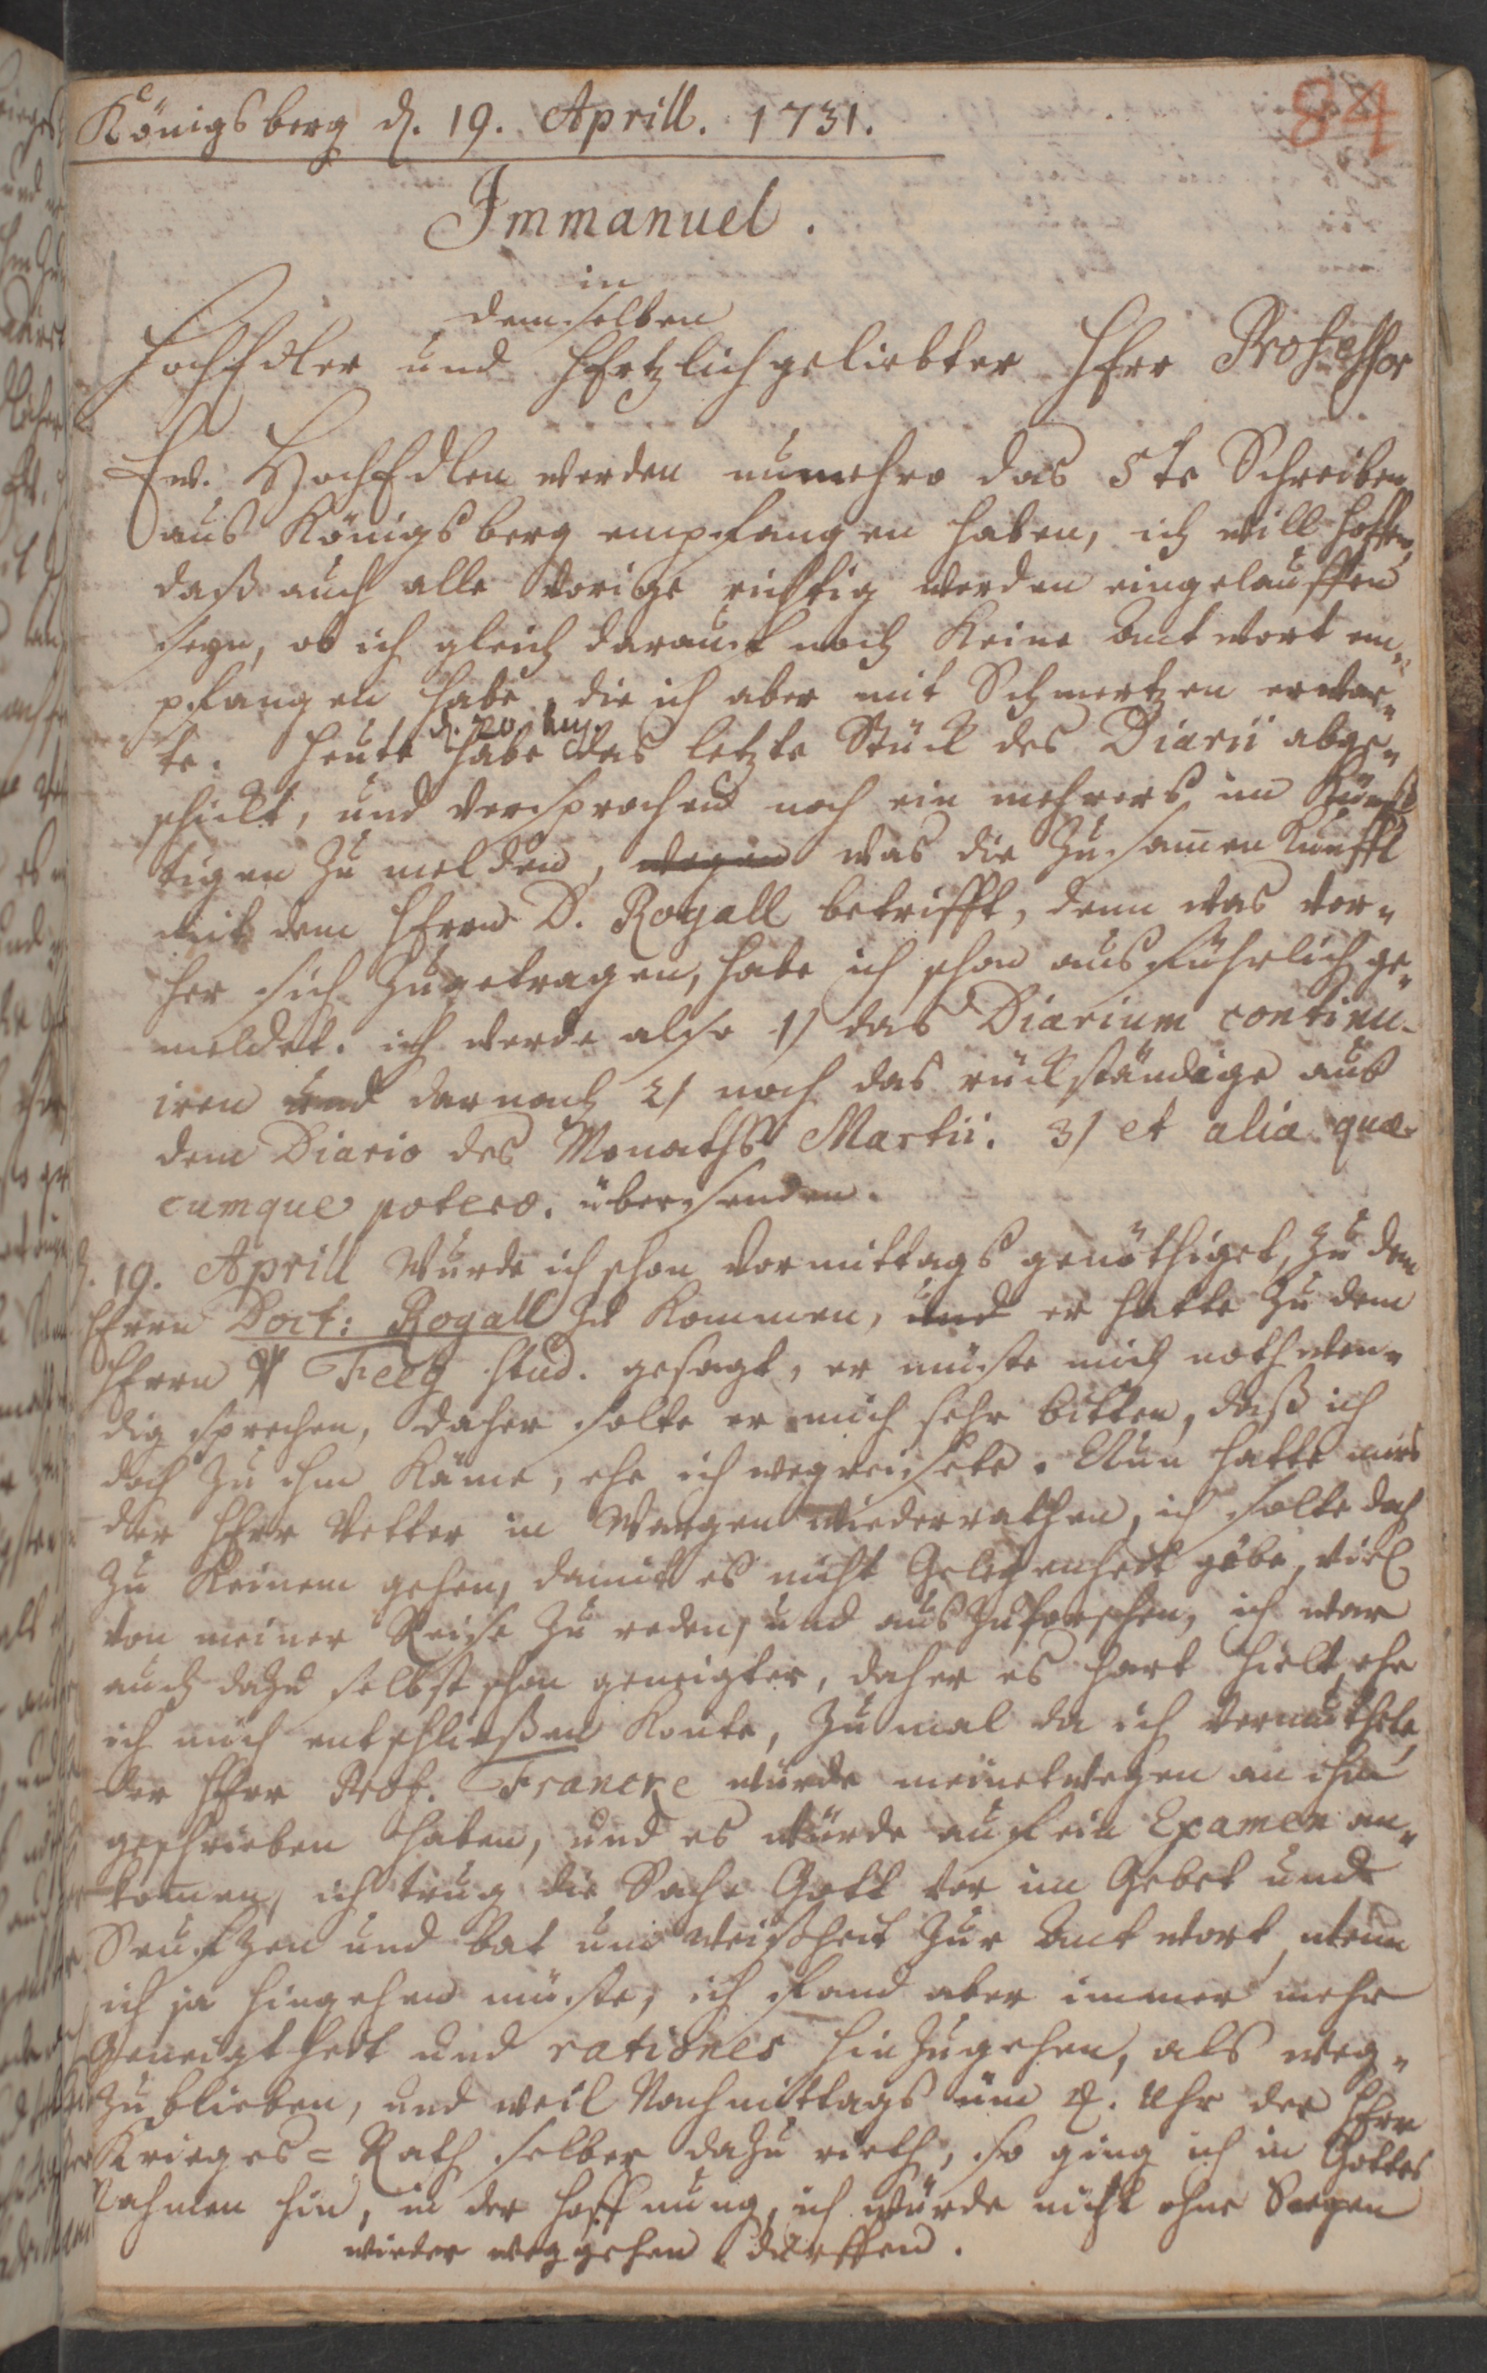 Königsberg d. 19. Aprill. 1731.
84
Immanuel.
in
demselben
HochEdler und Hertzlichgeliebter Herr Professor
Ew. HochEdlen werden nunmehro das 5te Schreiben
aus Königsberg empfangen haben, ich will hoffen,
daß auch alle vorige richtig werden eingelauffen
seyn, ob ich gleich darauf noch keine Antwort em„
pfangen habe, die ich aber mit Schmertzen erwar„
te. Heute d. 20. huj. habe das letzte Stück des Diarii abge„
schickt, und versprochen noch ein mehrers im künff
tigen zu melden, wegen was die Zusam̅en kunfft
mit dem Herrn D. Rogall betrifft, denn was vor„
her sich zugetragen, habe ich schon ausführlich ge„
meldet. ich werde also 1) das Diarium continu-
iren und darnach 2) noch das rückständige aus
dem Diario des Monaths Martii. 3) et alia quæ-
cumque potero. übersenden.
d. 19. Aprill Wurde ich schon vormittags genöthiget, zu dem
Herrn Doct: Rogall zu kommen, und er hatte zu dem
Herrn stud. gesagt, er müste mich nothwen„
dig sprechen, daher solte er mich sehr bitten, daß ich
doch zu ihm käme, ehe ich wegreisete. Nun hatte mirs
der Herr Vetter in Wargen wiederrathen, ich solte doch
zu keinem gehen, damit es nicht Gelegenheit gäbe, viel
von meiner Reise zu reden, und auszuforschen, ich war
auch dazu selbst schon geneigter, daher es hart hielt, ehe
ich mich entschließen konte, zumal da ich vermuthete,
der Herr Prof. Francke würde meinetwegen an ihn
geschrieben haben, und es würde auf ein Examen an„
kom̅en, ich trug die Sache Gott vor im Gebet und
Seufzen und bat um Weißheit zur Antwort, wenn
ich ja hingehen müste, ich fand aber immer mehr
Geneigtheit und rationes hinzugehen, als weg„
zublieben, und weil Nachmittags um 4. Uhr der Herr
Krieges=Rath selber dazu rieth, so ging ich in Gottes
Nahmen hin, in der Hoffnung, ich würde nicht ohne Seegen
wieder weggehen dürffen.